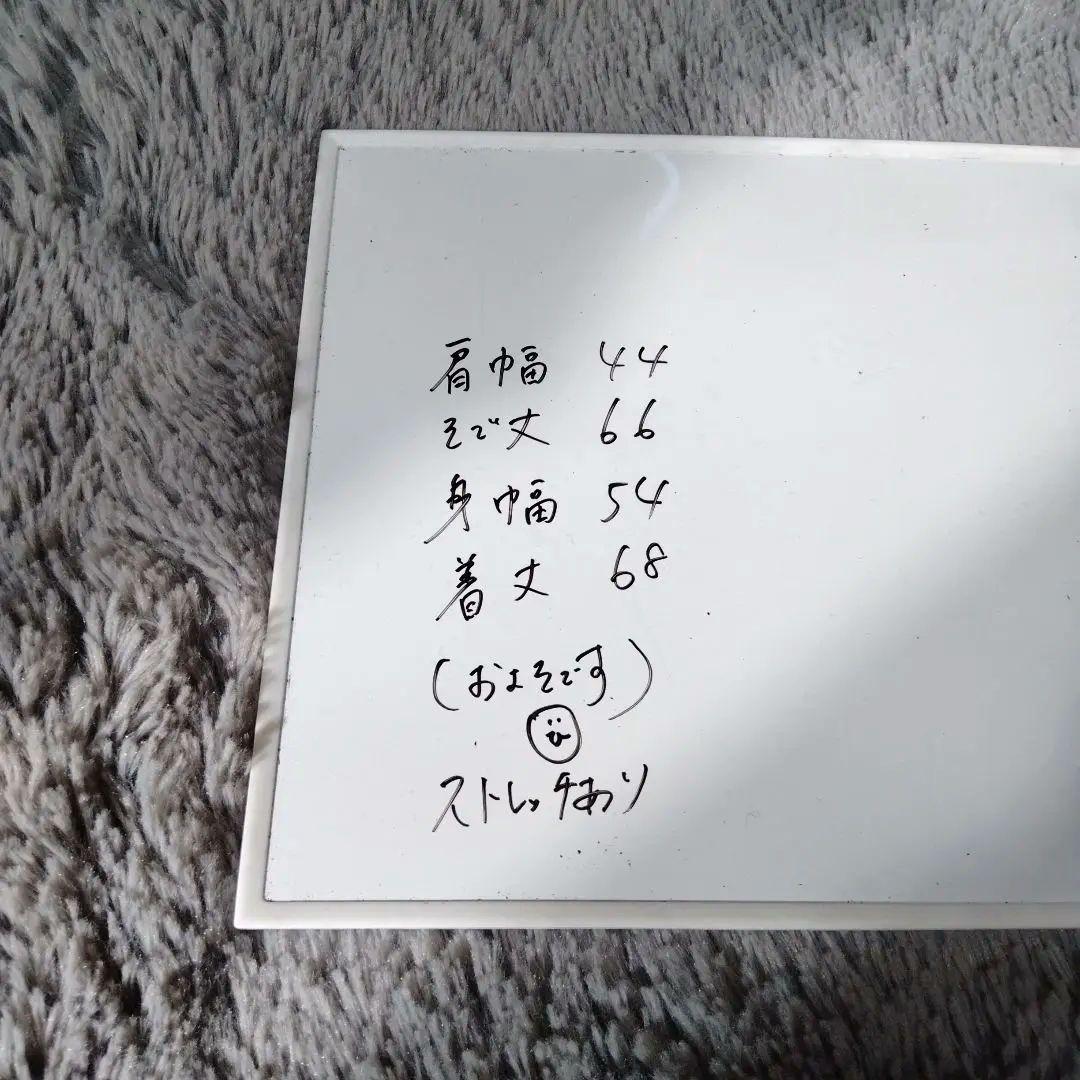 肩幅 44
そで丈 66
身幅 54
着丈 68
(およそです)
ストレッチあり